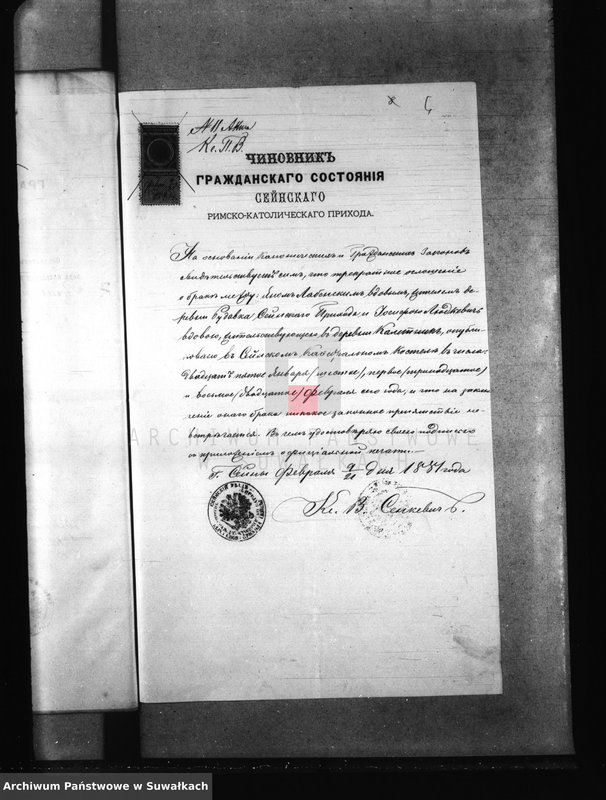 № 11 Акта
Кс. П. В.
ЧИНОВНИКЪ
ГРАЖДАНСКАГО СОСТОЯНІЯ
СЕЙНСКАГО
РИМСКО-КАТОЛИЧЕСКАГО ПРИХОДА.
На основаніи Каноническихъ и Гражданскихъ Законовъ
свидѣтельствуется симъ, что троекратное оглашеніе
о бракѣ между вдовымъ, жителемъ де-
ревни Будовка, Сейнскаго Прихода и
вдовою, жительствующею въ деревнѣ Калѣтникъ, опубли-
ковано въ Сейнскомъ Каѳедральномъ Костелѣ въ числа:
двадцать пятое Января /шестое/, первое /тринадцатое/
и восьмое /двадцатое/ Февраля сего года, и что на заклю-
ченіе онаго брака никакое законное препятствіе не
встрѣчается. Въ чемъ удостовѣряю своею подписью
съ приложеніемъ оффиціальной печати.—
Г. Сейны Февраля 9/21 дня 1881 года
Кс. В. Сенкевичъ.
ARCHIWUM PAŃSTWOWE
W SUWAŁKACH
Archiwum Państwowe w Suwałkach